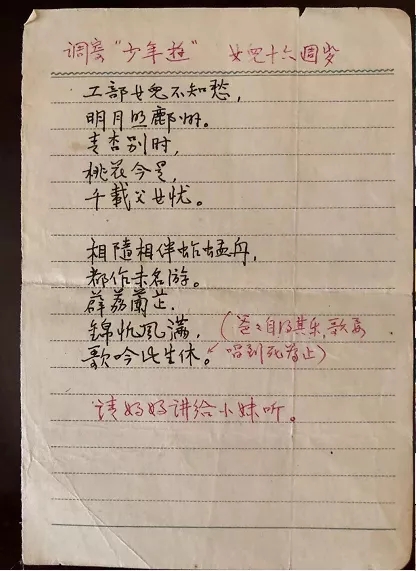 调寄“少年游” 女兒十六週岁
工部女兒不知愁，
明月照鄜州。
青杏别时，
桃花今是，
千載父女忧。
相随相伴蚱蜢舟，
都作未名游。
薜荔蘭芷，
錦帆風满，
歌吟此生休。
（爸爸自得其乐，歌要
唱到死为止）
请好好讲给小妹听。